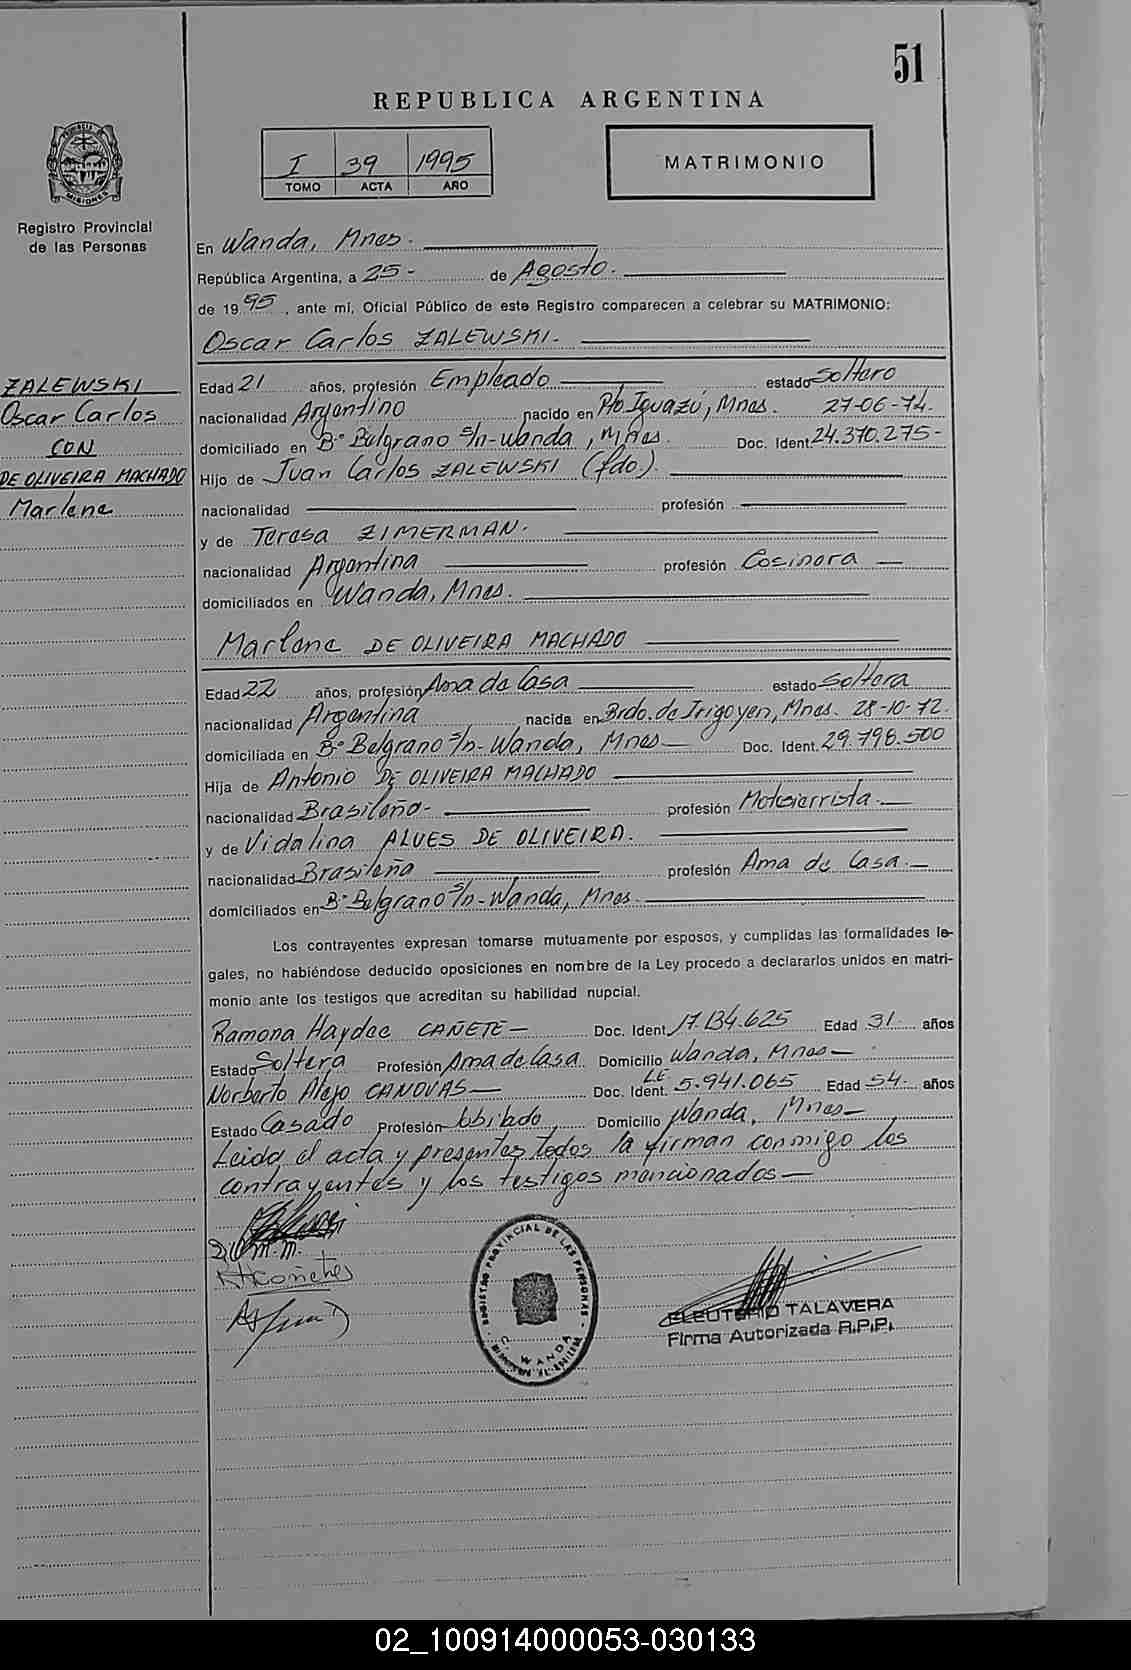 51
REPUBLICA ARGENTINA
I 39 1995
TOMO ACTA AÑO
MATRIMONIO
MISIONES
Registro Provincial
de las Personas
ZALEWSKI
Oscar Carlos
CON
DE OLIVEIRA MACHADO
Marlene
En Wanda, Mnes.
República Argentina, a 25- de Agosto.
de 1995, ante mí, Oficial Público de este Registro comparecen a celebrar su MATRIMONIO:
Oscar Carlos ZALEWSKI.
Edad 21 años, profesión Empleado estado Soltero
nacionalidad Argentino nacido en Pto Iguazú, Mnes. 27-06-74.
domiciliado en B° Belgrano s/n-Wanda, Mnes. Doc. Ident. 24.370.275-
Hijo de Juan Carlos ZALEWSKI (fdo).
nacionalidad profesión
y de Teresa ZIMERMAN.
nacionalidad Argentina profesión Cosinera
domiciliados en Wanda, Mnes.
Marlene DE OLIVEIRA MACHADO
Edad 22 años, profesión Ama de Casa estado Soltera
nacionalidad Argentina nacida en Brdo. de Irigoyen, Mnes. 28-10-72.
domiciliada en B° Belgrano s/n-Wanda, Mnes Doc. Ident. 29.798.500
Hija de Antonio DE OLIVEIRA MACHADO
nacionalidad Brasileño- profesión Motosierrista.
y de Vidalina ALVES DE OLIVEIRA.
nacionalidad Brasileña profesión Ama de Casa.
domiciliados en B° Belgrano s/n-Wanda, Mnes.
Los contrayentes expresan tomarse mutuamente por esposos, y cumplidas las formalidades le-
gales, no habiéndose deducido oposiciones en nombre de la Ley procedo a declararlos unidos en matri-
monio ante los testigos que acreditan su habilidad nupcial.
Ramona Haydee CAÑETE- Doc. Ident. 17.134.625 Edad 31 años
Estado Soltera Profesión Ama de Casa Domicilio Wanda, Mnes-
Norberto Alejo CANOVAS- Doc. Ident. LE 5.941.065 Edad 54- años
Estado Casado Profesión Jubilado Domicilio Wanda, Mnes-
Leida el acta y presentes todos la firman conmigo los
contrayentes y los testigos mencionados-
REGISTRO PROVINCIAL DE LAS PERSONAS
WANDA
ELEUTERIO TALAVERA
Firma Autorizada R.P.P.
02_100914000053-030133